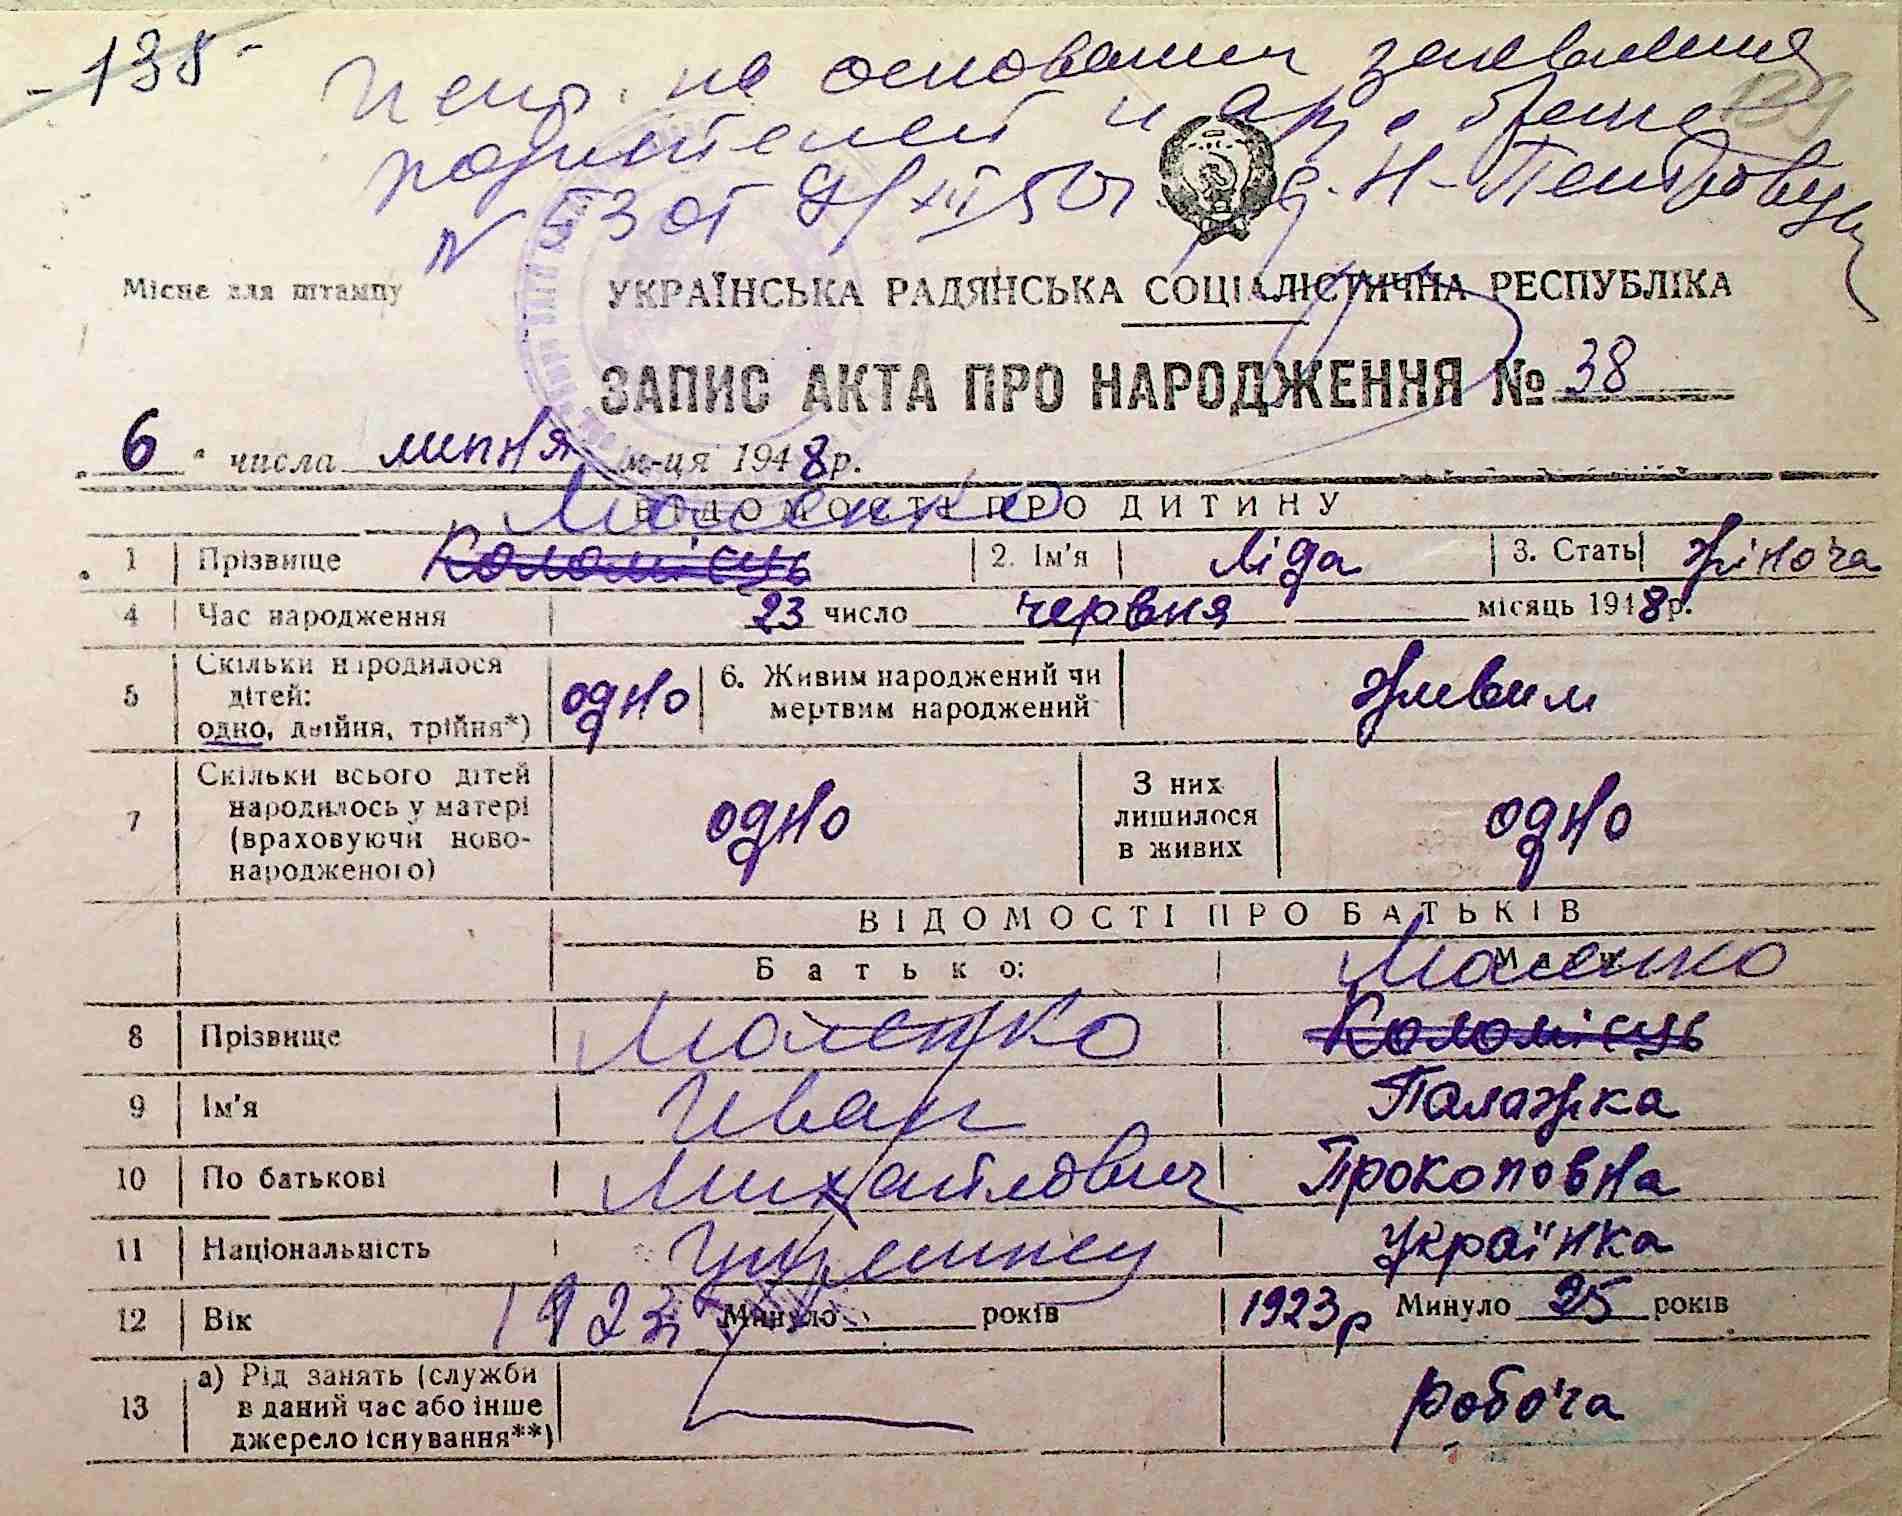 - 138 -
139
на основании заявления
родителей и а/з о браке
N 53 от XII 50г. с. Н-
Місце для штампу
УКРАЇНСЬКА РАДЯНСЬКА СОЦІАЛІСТИЧНА РЕСПУБЛІКА
ЗАПИС АКТА ПРО НАРОДЖЕННЯ № 38
„ 6 " числа липня м-ця 1948 р.
ВІДОМОСТІ ПРО ДИТИНУ
1 Прізвище Коломієць 2. Ім'я Ліда 3. Стать жіноча
4 Час народження 23 число червня місяць 1948 р.
5 Скільки народилося
дітей:
одно, двійня, трійня*) одно 6. Живим народжений чи
мертвим народжений живим
7 Скільки всього дітей
народилось у матері
(враховуючи ново-
народженого) одно З них
лишилося
в живих одно
ВІДОМОСТІ ПРО БАТЬКІВ
Батько: Мати
8 Прізвище Коломієць
9 Ім'я Иван Палажка
10 По батькові Михайлович Прокоповна
11 Національність украинец українка
12 Вік 1923 Минуло років 1923р Минуло 25 років
13 а) Рід занять (служби
в даний час або інше
джерело існування**) робоча